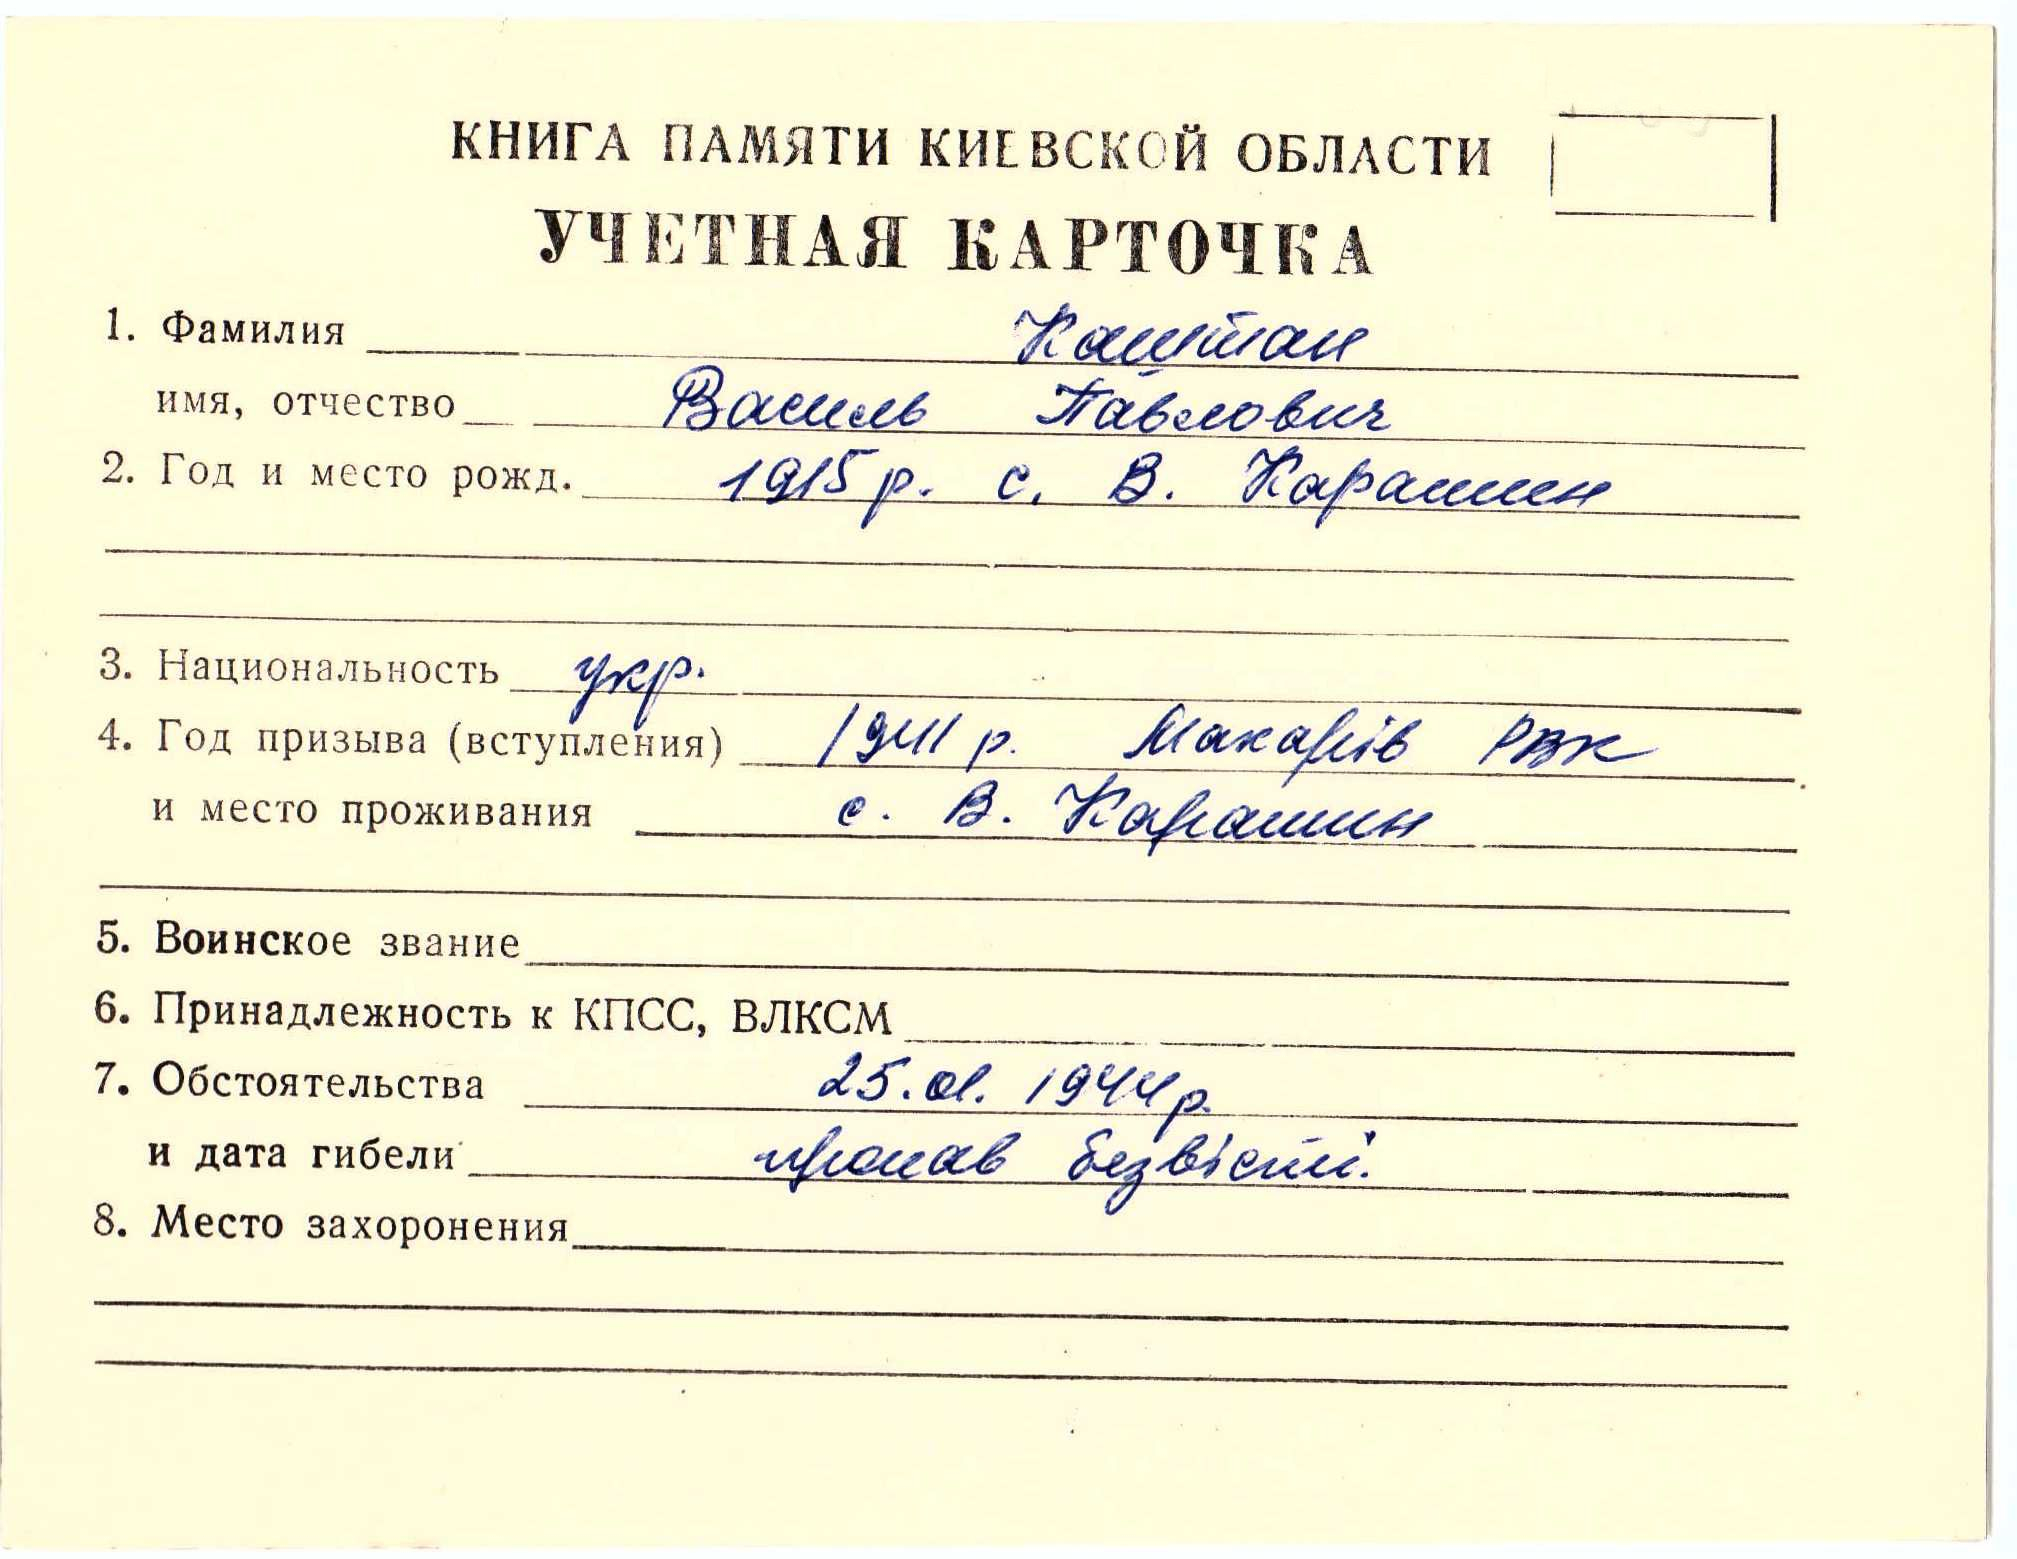 КНИГА ПАМЯТИ КИЕВСКОЙ ОБЛАСТИ
УЧЕТНАЯ КАРТОЧКА
1. Фамилия Каштан
имя, отчество Василь Павлович
2. Год и место рожд. 1915 р. с. В. Карашин
3. Национальность укр.
4. Год призыва (вступления) 1941 р. Макарів РВК
и место проживания с. В. Карашин
5. Воинское звание
6. Принадлежность к КПСС, ВЛКСМ
7. Обстоятельства 25.01.1944 р.
и дата гибели пропав безвісті.
8. Место захоронения